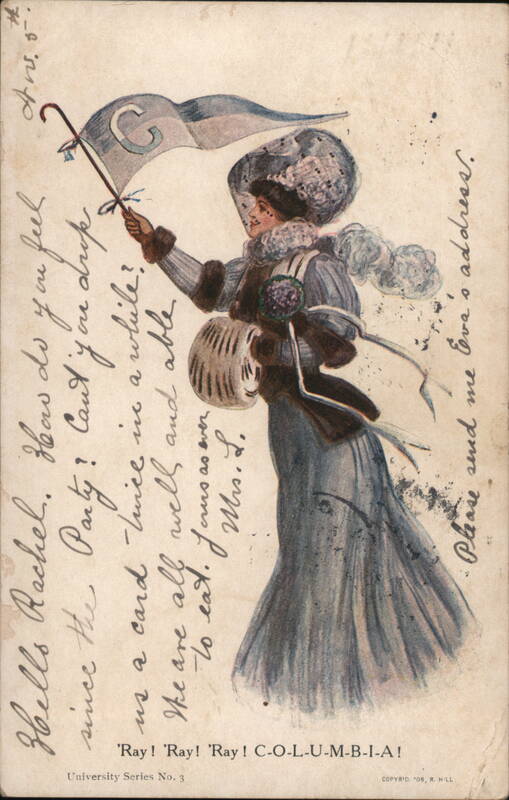 Nov. 5th
Hello Rachel. How do you feel
since the Party? Can't you drop
us a card twice in a while?
We are all well and able
to eat. Yours as ever
Mrs. L.
Please send me Eva's address.
C
'Ray! 'Ray! 'Ray! C-O-L-U-M-B-I-A!
University Series No. 3
COPYR'D. '06, R. HILL